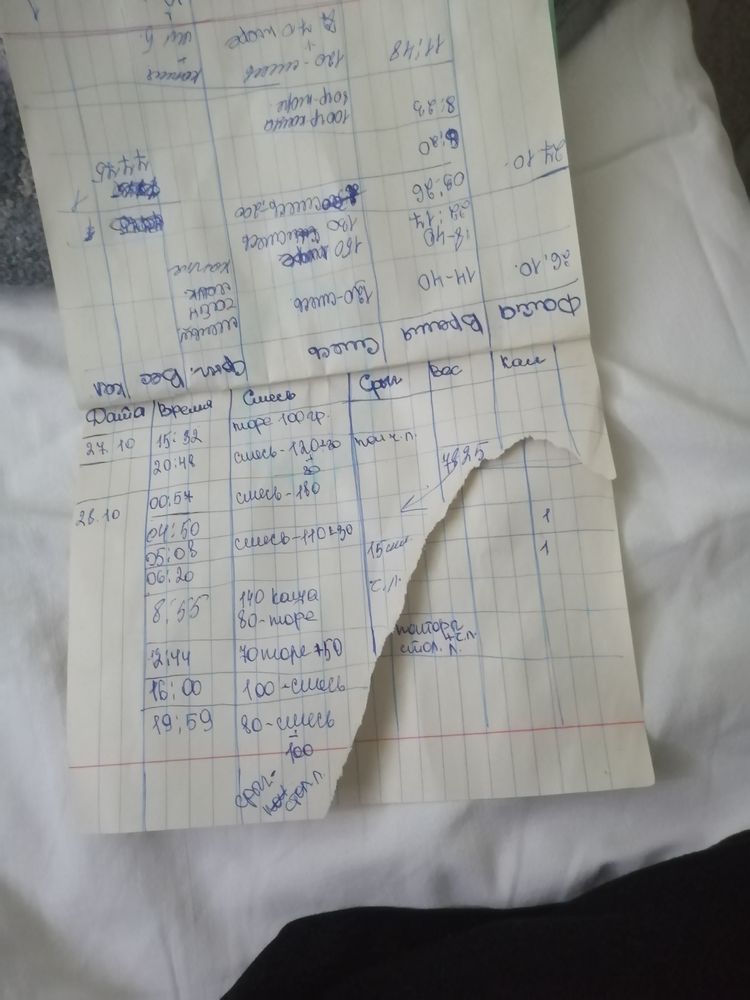 Дата Время Смесь Срыг. Вес Кал
26.10. 14-40 120-смесь
18-40 150 пюре
22:17 130 смесь
03:26 смесь 200
27.10. 8:20 7775
8:23 100гр каша
50гр пюре
11:48 120-смесь
+
70 пюре
Дата Время Смесь Срыг Вес Кал
27.10 15:32 пюре 100гр.
20:48 смесь-120+30 пол ч.л.
+
80
28.10 00:57 смесь-180 7825
04:50 1
05:08 смесь-110+30 15мл 1
06:20 ч.л.
8:55 140 каша
80-пюре
12:44 70 пюре +50 полторы
стол. л. +ч.л.
16:00 100-смесь
19:59 80-смесь
+
100
срыг-
стол л.